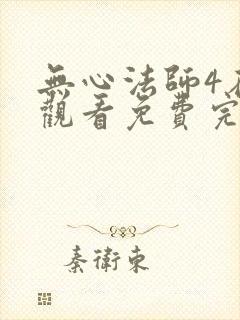 無心法師4
觀看免費完
秦衛東